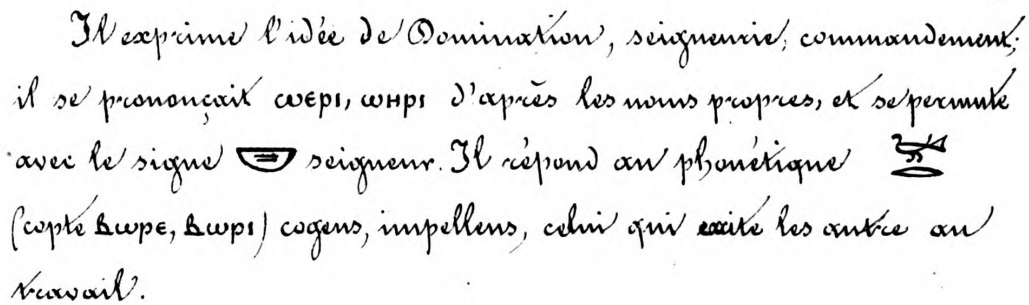 Il exprime l'idée de Domination, seigneurie, commandement;
il se prononçait ⲥⲱⲉⲣⲓ, ⲱⲏⲣⲓ d'après les noms propres, et se permute
avec le signe seigneur. Il répond au phonétique
(copte ⲃⲱⲣⲉ, ⲃⲱⲣⲓ) cogens, impellens, celui qui excite les autre au
travail.